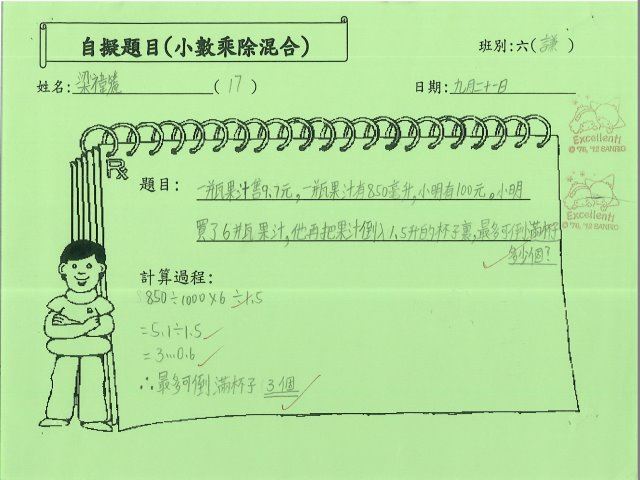 自擬題目(小數乘除混合)
班別:六(謙)
姓名:梁禕
(17)
日期:九月二十一日
Excellent!
© '76, '12 SANRIO
Excellent!
© '76, '12 SANRIO
題目:一瓶果汁售9.7元,一瓶果汁有850毫升,小明有100元。小明
買了6瓶果汁,他再把果汁倒入1.5升的杯子裏,最多可倒滿杯子
多少個?
計算過程:
850÷1000×6÷1.5
=5.1÷1.5
=3...0.6
∴最多可倒滿杯子3個